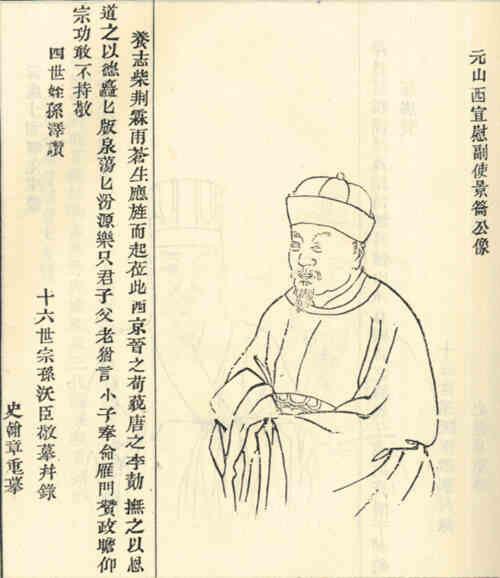 元山西宣慰副使景齋公像
養志柴荆霖雨蒼生應旌而起莅此西京晉之荀藐唐之李勣撫之以恩
道之以德矗匕版泉蕩匕汾源樂只君子父老猶言小子奉命雁門贊政瞻仰
宗功敢不持敬
四世姪孫澤讚
十六世宗孫沃臣敬摹幷錄
史翰章重摹